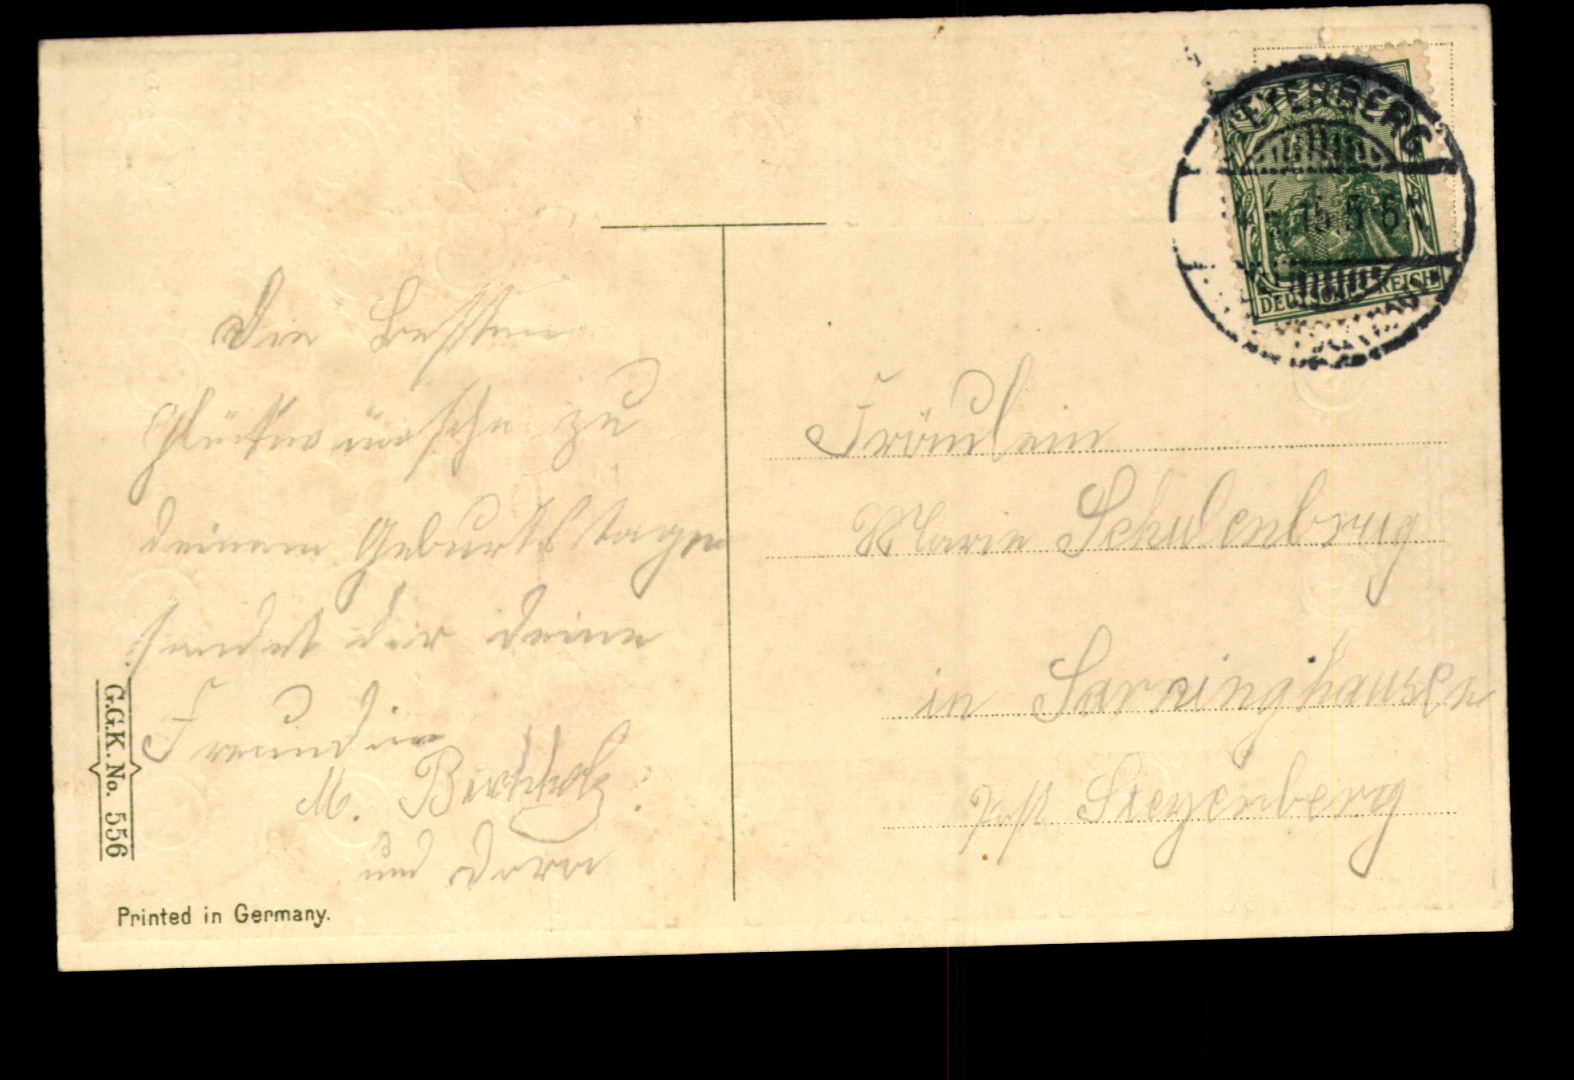 Die besten
Glückwünsche zu
deinem Geburtstage
sendet dir deine
Freundin
M. Bertholz
und Dora
Fräulein
Marie Schulenbrug
in Sarninghausen
Post Steyerberg
EYERBERG
15.5-6N
DEUTSCHES REICH
G.G.K. No. 556
Printed in Germany.